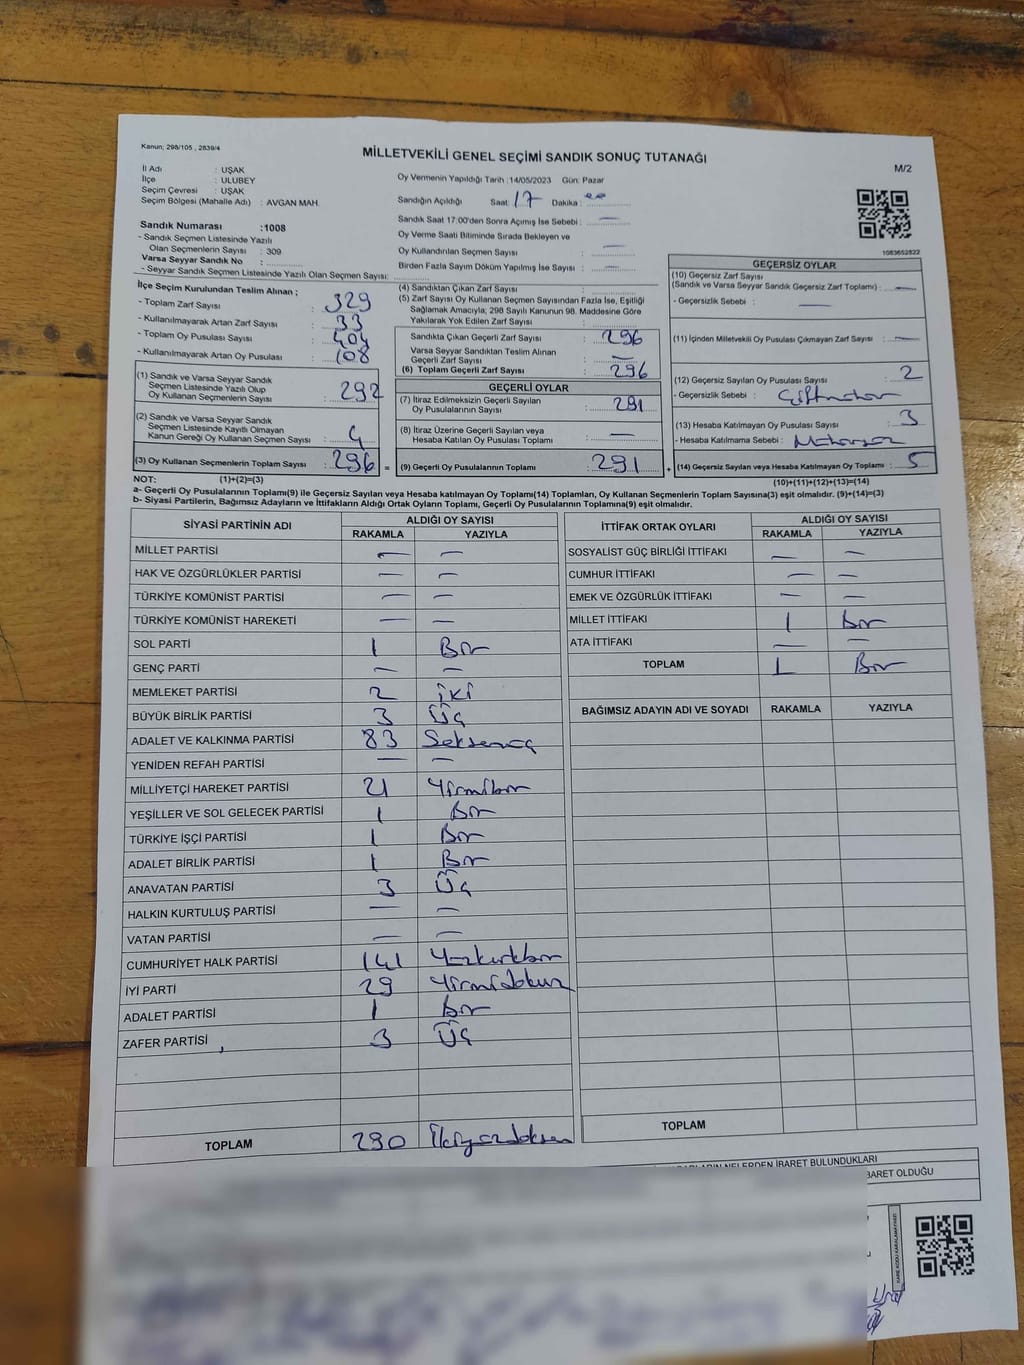 Kanun; 298/105 , 2839/4
MİLLETVEKİLİ GENEL SEÇİMİ SANDIK SONUÇ TUTANAĞI
M/2
İl Adı : UŞAK
İlçe : ULUBEY
Seçim Çevresi : UŞAK
Seçim Bölgesi (Mahalle Adı) : AVGAN MAH.
Sandık Numarası :1008
- Sandık Seçmen Listesinde Yazılı
Olan Seçmenlerin Sayısı : 309
Varsa Seyyar Sandık No :
- Seyyar Sandık Seçmen Listesinde Yazılı Olan Seçmen Sayısı:
Oy Vermenin Yapıldığı Tarih :14/05/2023 Gün: Pazar
Sandığın Açıldığı Saat : 17 Dakika :
Sandık Saat 17:00'den Sonra Açımış İse Sebebi : —
Oy Verme Saati Bitiminde Sırada Bekleyen ve
Oy Kullandırılan Seçmen Sayısı : —
Birden Fazla Sayım Döküm Yapılmış İse Sayısı : —
1083652822
İlçe Seçim Kurulundan Teslim Alınan ;
- Toplam Zarf Sayısı : 329
- Kullanılmayarak Artan Zarf Sayısı : 33
- Toplam Oy Pusulası Sayısı : 404
- Kullanılmayarak Artan Oy Pusulası : 108
(1) Sandık ve Varsa Seyyar Sandık
Seçmen Listesinde Yazılı Olup
Oy Kullanan Seçmenlerin Sayısı : 292
(2) Sandık ve Varsa Seyyar Sandık
Seçmen Listesinde Kayıtlı Olmayan
Kanun Gereği Oy Kullanan Seçmen Sayısı : 4
(3) Oy Kullanan Seçmenlerin Toplam Sayısı : 296 =
(4) Sandıktan Çıkan Zarf Sayısı :
(5) Zarf Sayısı Oy Kullanan Seçmen Sayısından Fazla İse, Eşitliği
Sağlamak Amacıyla; 298 Sayılı Kanunun 98. Maddesine Göre
Yakılarak Yok Edilen Zarf Sayısı :
Sandıkta Çıkan Geçerli Zarf Sayısı : 296
Varsa Seyyar Sandıktan Teslim Alınan
Geçerli Zarf Sayısı : —
(6) Toplam Geçerli Zarf Sayısı : 296
GEÇERLİ OYLAR
(7) İtiraz Edilmeksizin Geçerli Sayılan
Oy Pusulalarının Sayısı : 291
(8) İtiraz Üzerine Geçerli Sayılan veya
Hesaba Katılan Oy Pusulası Toplamı : —
(9) Geçerli Oy Pusulalarının Toplamı : 291 +
GEÇERSİZ OYLAR
(10) Geçersiz Zarf Sayısı
(Sandık ve Varsa Seyyar Sandık Geçersiz Zarf Toplamı) : —
- Geçersizlik Sebebi : —
(11) İçinden Milletvekili Oy Pusulası Çıkmayan Zarf Sayısı : —
(12) Geçersiz Sayılan Oy Pusulası Sayısı : 2
- Geçersizlik Sebebi :
(13) Hesaba Katılmayan Oy Pusulası Sayısı : 3
- Hesaba Katılmama Sebebi :
(14) Geçersiz Sayılan veya Hesaba Katılmayan Oy Toplamı : 5
NOT: (1)+(2)=(3)
(10)+(11)+(12)+(13)=(14)
a- Geçerli Oy Pusulalarının Toplamı(9) ile Geçersiz Sayılan veya Hesaba katılmayan Oy Toplamı(14) Toplamları, Oy Kullanan Seçmenlerin Toplam Sayısına(3) eşit olmalıdır. (9)+(14)=(3)
b- Siyasi Partilerin, Bağımsız Adayların ve İttifakların Aldığı Ortak Oyların Toplamı, Geçerli Oy Pusulalarının Toplamına(9) eşit olmalıdır.
SİYASİ PARTİNİN ADI ALDIĞI OY SAYISI
RAKAMLA YAZIYLA
MİLLET PARTİSİ — —
HAK VE ÖZGÜRLÜKLER PARTİSİ — —
TÜRKİYE KOMÜNİST PARTİSİ — —
TÜRKİYE KOMÜNİST HAREKETİ — —
SOL PARTİ 1 Bir
GENÇ PARTİ — —
MEMLEKET PARTİSİ 2 iki
BÜYÜK BİRLİK PARTİSİ 3 Üç
ADALET VE KALKINMA PARTİSİ 83 Seksenüç
YENİDEN REFAH PARTİSİ — —
MİLLİYETÇİ HAREKET PARTİSİ 21 Yirmibir
YEŞİLLER VE SOL GELECEK PARTİSİ 1 Bir
TÜRKİYE İŞÇİ PARTİSİ 1 Bir
ADALET BİRLİK PARTİSİ 1 Bir
ANAVATAN PARTİSİ 3 Üç
HALKIN KURTULUŞ PARTİSİ — —
VATAN PARTİSİ — —
CUMHURİYET HALK PARTİSİ 141 Yüzkırkbir
İYİ PARTİ 29 Yirmidokuz
ADALET PARTİSİ 1 Bir
ZAFER PARTİSİ 3 Üç
TOPLAM 290 İkiyüzdoksan
İTTİFAK ORTAK OYLARI ALDIĞI OY SAYISI
RAKAMLA YAZIYLA
SOSYALİST GÜÇ BİRLİĞİ İTTİFAKI — —
CUMHUR İTTİFAKI — —
EMEK VE ÖZGÜRLÜK İTTİFAKI — —
MİLLET İTTİFAKI 1 Bir
ATA İTTİFAKI — —
TOPLAM 1 Bir
BAĞIMSIZ ADAYIN ADI VE SOYADI RAKAMLA YAZIYLA
TOPLAM
NELERDEN İBARET BULUNDUKLARI
İBARET OLDUĞU